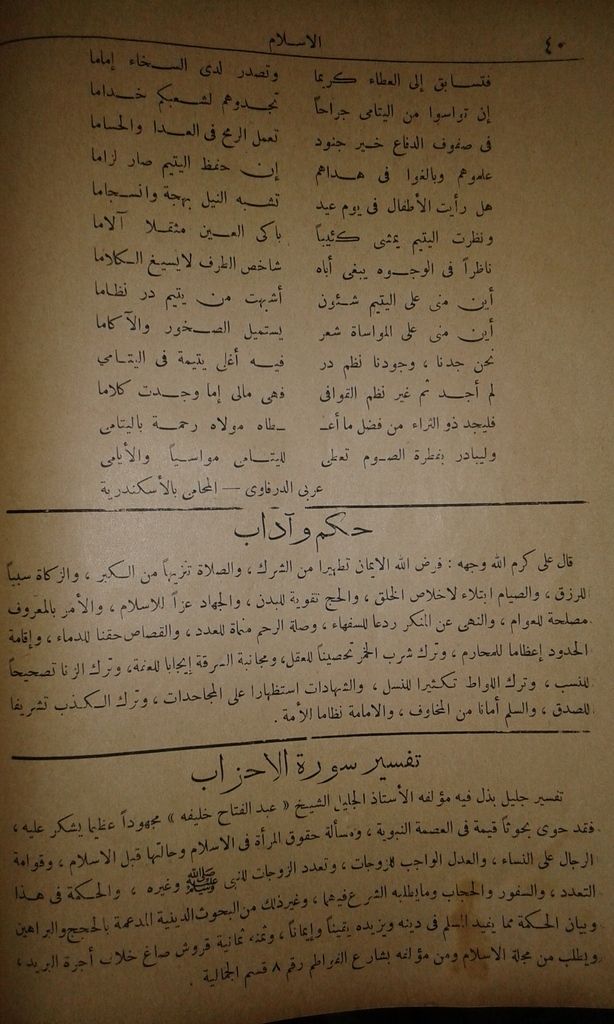 ٤٠
الاسلام
فتسابق إلى العطاء كريما وتصدر لدى السخاء إماما
إن تواسوا من اليتامى جراحاً تجدوهم لشعبكم خداما
فى صفوف الدفاع خير جنود تعمل الرمح فى العدا والحساما
علموهم وبالغوا فى هداهم إن حفظ اليتيم صار لزاما
هل رأيت الأطفال فى يوم عيد تشبه النيل بهجة وانسجاما
ونظرت اليتيم يمشى كئيباً باكى العين مثقلا آلاما
ناظراً فى الوجوه يبغى أباه شاخص الطرف لايسيغ الكلاما
أين منى على اليتيم شئون أشبهت من يتيم در نظاما
أين منى على المواساة شعر يستميل الصخور والآكاما
نحن جدنا ، وجودنا نظم در فيه أغلى يتيمة فى اليتامي
لم أجد ثم غير نظم القوافى فهى مالى إما وجدت كلاما
فليجد ذو الثراء من فضل ما أعـ ـطاه مولاه رحمة باليتامى
وليبادر بفطرة الصوم تعطى لليتامى مواسياً والأيامى
عربى الدرفاوى — المحامى بالأسكندرية
حكم وآداب
قال على كرم الله وجهه : فرض الله الايمان تطهيرا من الشرك ، والصلاة تنزيهاً من الكبر ، والزكاة سبباً
للرزق ، والصيام ابتلاء لاخلاص الخلق ، والحج تقوية للبدن ، والجهاد عزاً للاسلام ، والأمر بالمعروف
مصلحة للعوام ، والنهى عن المنكر ردعا للسفهاء ، وصلة الرحم منماة للعدد ، والقصاص حقنا للدماء ، وإقامة
الحدود إعظاما للمحارم ، وترك شرب الخمر تحصيناً للعقل، ومجانبة السرقة إيجابا للعفة، وترك الزنا تصحيحاً
للنسب ، وترك اللواط تكثيرا للنسل ، والشهادات استظهارا على المجاحدات ، وترك الكذب تشريفا
للصدق ، والسلم أمانا من المخاوف ، والامامة نظاما للأمة .
تفسير سورة الاحزاب
تفسير جليل بذل فيه مؤلفه الأستاذ الجليل الشيخ « عبد الفتاح خليفه » مجهوداً عظيما يشكر عليه ،
فقد حوى بحوثاً قيمة فى العصمة النبوية ، ومسألة حقوق المرأة فى الاسلام وحالتها قبل الاسلام ، وقوامة
الرجال على النساء ، والعدل الواجب للزوجات ، وتعدد الزوجات للنبى ﷺ وغيره ، والحكمة فى هذا
التعدد ، والسفور والحجاب ومايطلبه الشرع فيهما ، وغير ذلك من البحوث الدينية المدعمة بالحجج والبراهين
وبيان الحكمة مما يفيد المسلم فى دينه ويزيده يقيناً وإيماناً ، وثمنه ثمانية قروش صاغ خلاف أجرة البريد ،
ويطلب من مجلة الاسلام ومن مؤلفه بشارع رقم ٨ قسم الجمالية .